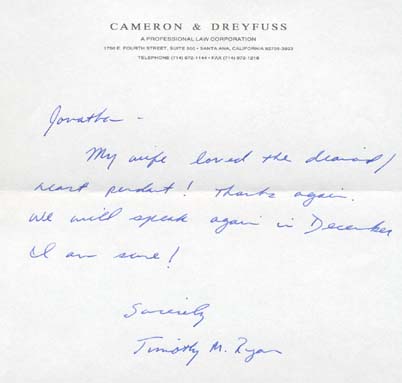 CAMERON & DREYFUSS
A PROFESSIONAL LAW CORPORATION
1750 E. FOURTH STREET, SUITE 500 • SANTA ANA, CALIFORNIA 92705-3923
TELEPHONE (714) 972-1144 • FAX (714) 972-1216
Jonathan -
My wife loved the diamond/
heart pendant! Thanks again.
We will speak again in December
I am sure!
Sincerely
Timothy M. Ryan